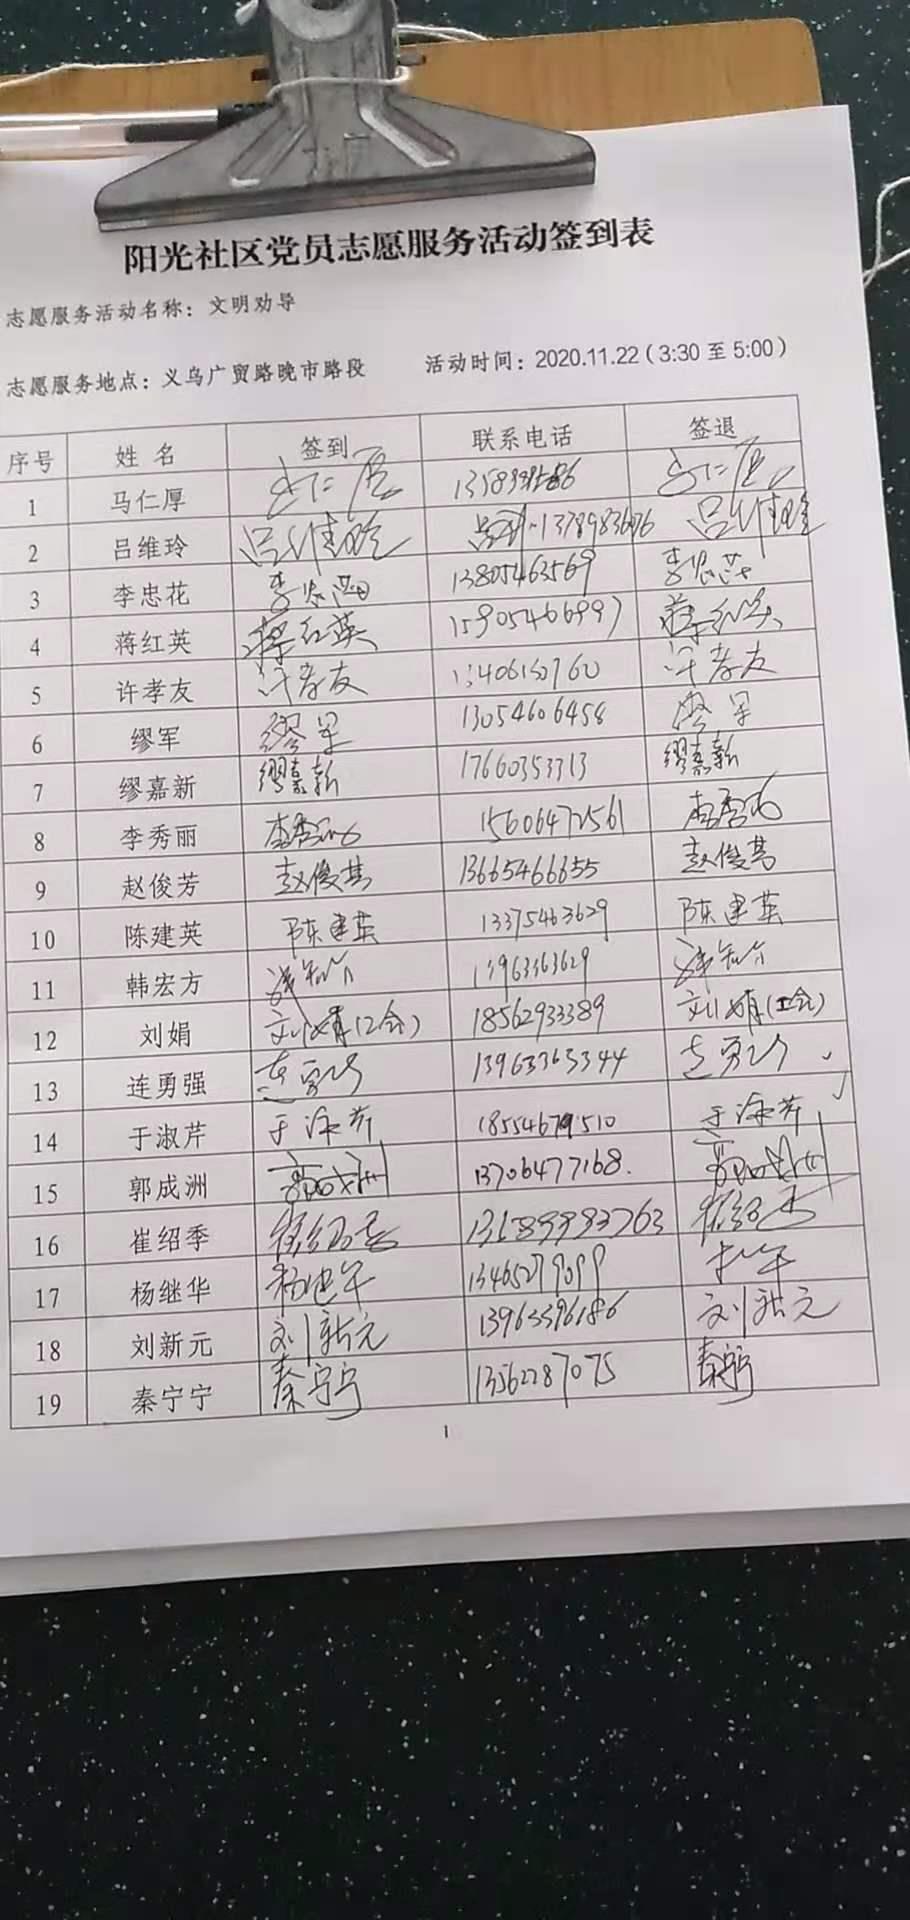 阳光社区党员志愿服务活动签到表
志愿服务活动名称：文明劝导
志愿服务地点：义乌广贸路晚市路段 活动时间：2020.11.22（3:30 至 5:00）
序号 姓 名 签到 联系电话 签退
1 马仁厚 马仁厚 马仁厚
2 吕维玲 吕维玲 吕维玲
3 李忠花 李忠花 13805463569 李忠花
4 蒋红英 蒋红英 15905466997 蒋红英
5 许孝友 许孝友 13406150760 许孝友
6 缪军 缪军 13054606458 缪军
7 缪嘉新 缪嘉新 17660353313 缪嘉新
8 李秀丽 李秀丽 15606472561 李秀丽
9 赵俊芳 赵俊芳 13665466655 赵俊芳
10 陈建英 陈建英 13375463629 陈建英
11 韩宏方 13963363629
12 刘娟 刘娟（工会） 18562933389 刘娟（工会）
13 连勇强 连勇强 13963363344 连勇强
14 于淑芹 于淑芹 于淑芹
15 郭成洲 郭成洲 13706477168. 郭成洲
16 崔绍季 崔绍季 崔绍季
17 杨继华 杨继华 13465279099
18 刘新元 刘新元 13963396186 刘新元
19 秦宁宁 秦宁宁 13562287075 秦宁宁
1